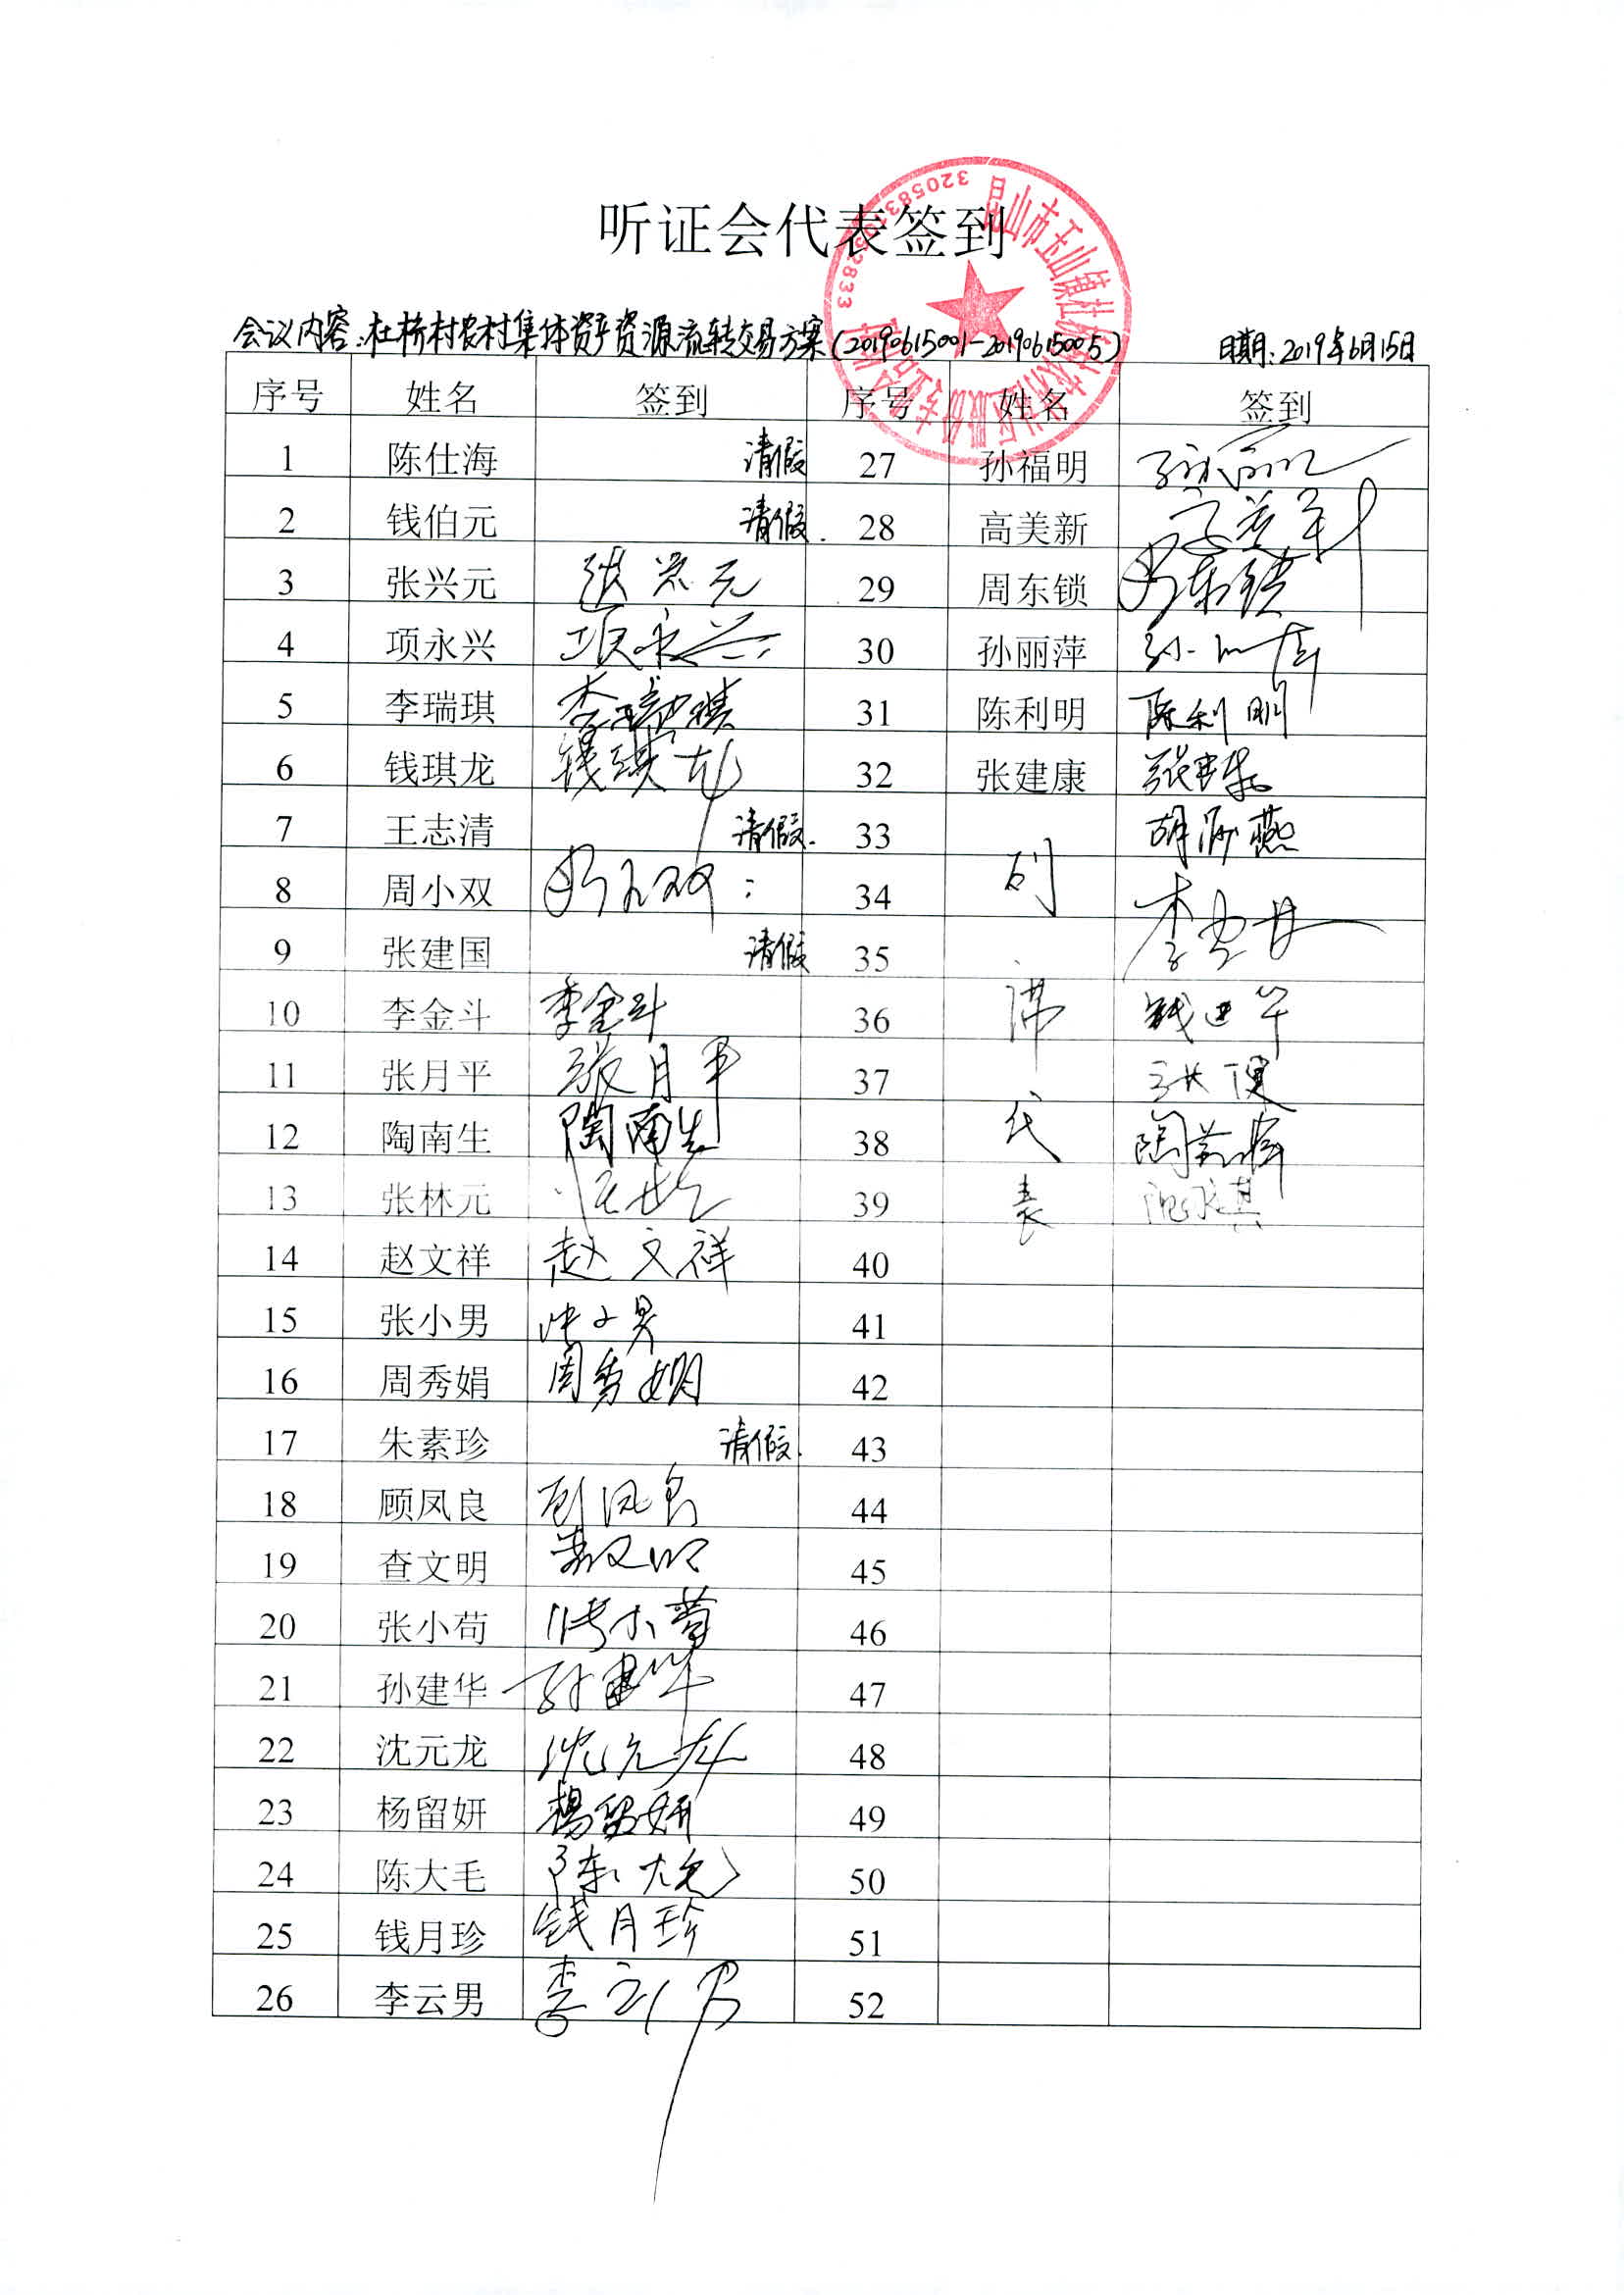 听证会代表签到
3205831052833
会议内容：杜桥村农村集体资产资源流转交易方案(20190615001-20190615005) 日期：2019年6月15日
序号 姓名 签到 序号 姓名 签到
1 陈仕海 请假 27 孙福明 孙福明
2 钱伯元 请假. 28 高美新 高美新
3 张兴元 张兴元 29 周东锁 周东锁
4 项永兴 项永兴 30 孙丽萍 孙丽萍
5 李瑞琪 李瑞琪 31 陈利明 陈利明
6 钱琪龙 钱琪龙 32 张建康 张建康
7 王志清 请假. 33
8 周小双 周小双 34 列
9 张建国 请假 35
10 李金斗 李金斗 36 席 钱建华
11 张月平 张月平 37
12 陶南生 陶南生 38 代
13 张林元 39 表
14 赵文祥 赵文祥 40
15 张小男 张小男 41
16 周秀娟 周秀娟 42
17 朱素珍 请假. 43
18 顾凤良 顾凤良 44
19 查文明 查文明 45
20 张小苟 张小苟 46
21 孙建华 孙建华 47
22 沈元龙 沈元龙 48
23 杨留妍 杨留妍 49
24 陈大毛 陈大毛 50
25 钱月珍 钱月珍 51
26 李云男 李云男 52